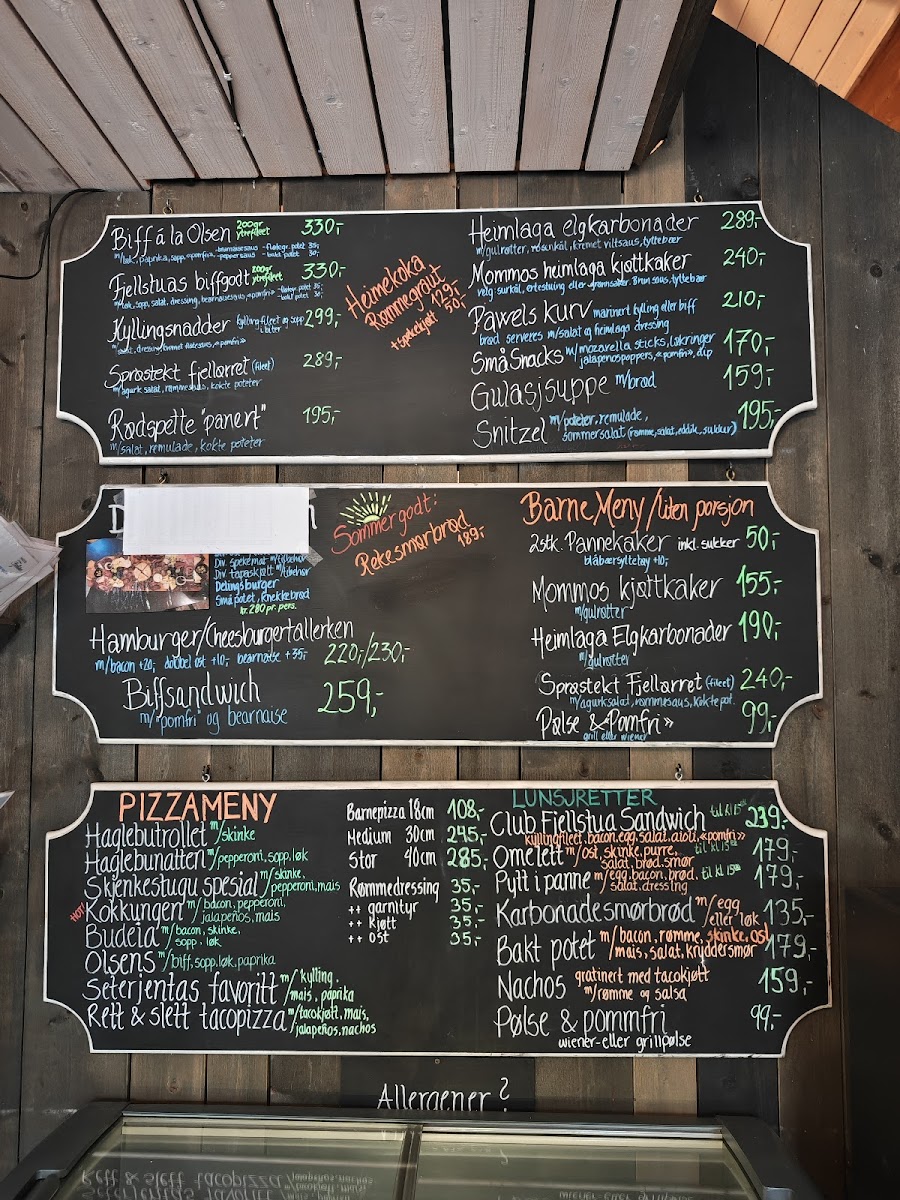 Biff á la Olsen 200gr ytrefilet 330,-
m/løk, paprika, sopp, «pomfri»
Fjellstuas biffgodt 200gr ytrefilet 330,-
Kyllingsnadder kyllingfileet og sopp i biter 299,-
Sprøstekt fjellørret (fileet) 289,-
m/agurksalat, rømmesaus, kokte poteter
Rødspette "panert" 195,-
m/salat, remulade, kokte poteter
Heimekoka
Rømmegraut
129,-
+ spekekjøtt 50,-
Heimlaga elgkarbonader 289,-
m/gulrøtter, rosenkål, kremet viltsaus, tyttebær
Mommos heimlaga kjøttkaker 240,-
velg surkål, ertestuing eller grønnsaker. Brun saus, tyttebær
Pawels kurv marinert kylling eller biff 210,-
brød serveres m/salat og heimlaga dressing
Små Snacks m/mozarella sticks, løkringer 170,-
jalapenopoppers, «pomfri», dip
Gulasjsuppe m/brød 159,-
Snitzel m/poteter, remulade, 195,-
sommersalat (rømme, salat, eddik, sukker)
Div. spekemat m/tilbehør
Div tapaskjøtt m/tilbehør
Delingsburger
Små potet, knekkebrød
kr. 280 pr. pers.
Sommergodt:
Rekesmørbrød
189,-
Hamburger/Cheesburgertallerken
m/bacon +20,- dobbel ost +10,- bearnaise +35,- 220,-/230,-
Biffsandwich 259,-
m/"pomfri" og bearnaise
Barne Meny/liten porsjon
2stk. Pannekaker inkl. sukker 50,-
blåbærsyltetøy +10,-
Mommos kjøttkaker 155,-
m/gulrøtter
Heimlaga Elgkarbonader 190,-
m/gulrøtter
Sprøstekt Fjellørret (fileet) 240,-
m/agurksalat, rømmesaus, kokte pot.
Pølse & Pomfri» 99,-
grill eller wiener
PIZZAMENY
Haglebutrollet m/skinke
Haglebunatten m/pepperoni, sopp, løk
Skjenkestugu spesial m/skinke,
pepperoni, mais
HOT! Kokkungen m/bacon, pepperoni,
jalapeños, mais
Budeia m/bacon, skinke,
sopp, løk
Olsens m/biff, sopp, løk, paprika
Seterjentas favoritt m/kylling,
mais, paprika
Rett & slett tacopizza m/tacokjøtt, mais,
jalapeños, nachos
Barnepizza 18cm 108,-
Medium 30cm 245,-
Stor 40cm 285,-
Rømmedressing 35,-
++ garnityr 35,-
++ kjøtt 35,-
++ ost 35,-
LUNSJRETTER
Club Fjellstua Sandwich til kl 15⁰⁰ 239,-
kyllingfilet, bacon, egg, salat, aioli, «pomfri»
Omelett m/ost, skinke, purre, til kl. 15⁰⁰ 179,-
salat, brød, smør
Pytt i panne m/egg, bacon, brød, til kl 15⁰⁰ 179,-
salat, dressing
Karbonadesmørbrød m/egg 135,-
eller løk
Bakt potet m/bacon, rømme, skinke, ost 179,-
mais, salat, kryddersmør
Nachos gratinert med tacokjøtt 159,-
m/rømme og salsa
Pølse & pommfri 99,-
wiener-eller grillpølse
Allergener?